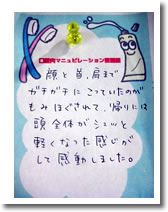 肉マニュピレーション
顔と首、肩まで
ガチガチにこっていたのが
もみほぐされて、帰りには
頭全体がシュッと
軽くなった感じが
して感動しました。